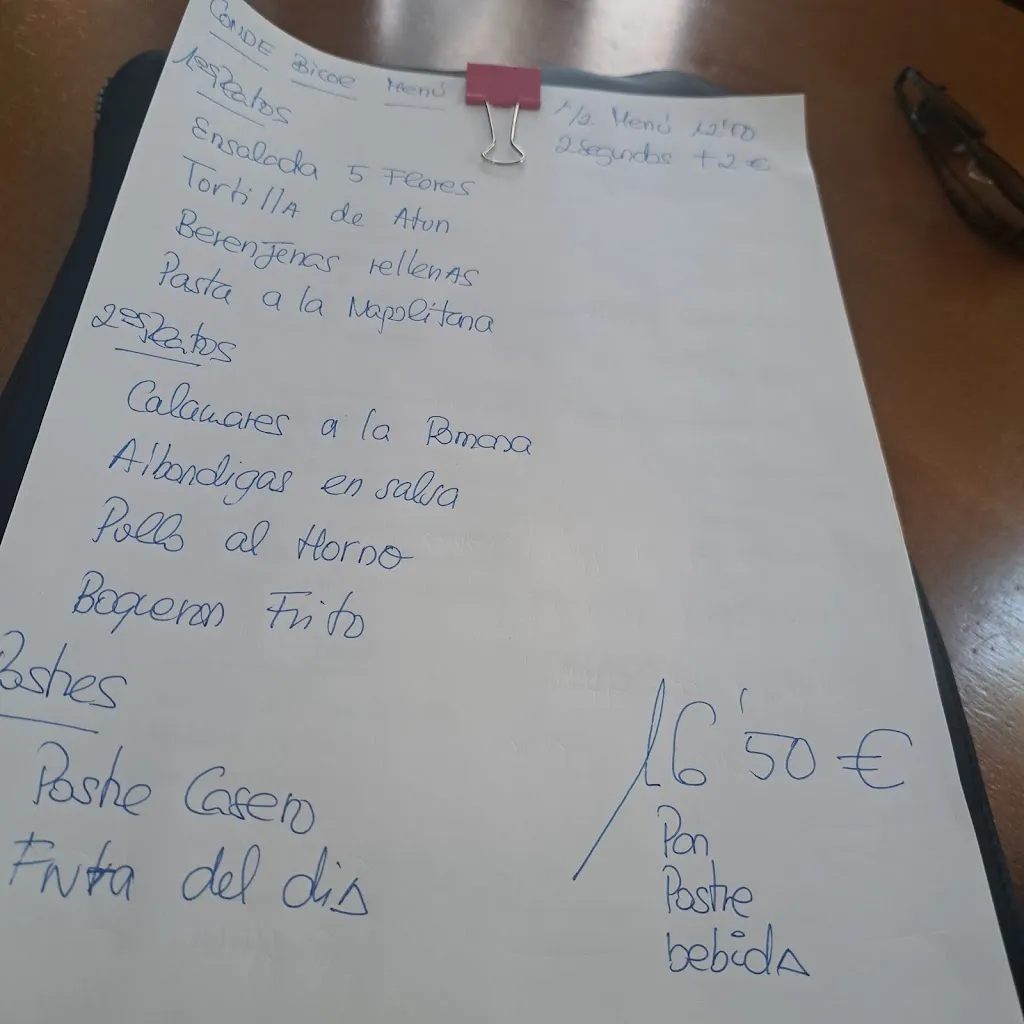 CONDE Bicoe Menú
1/2 Menú 12'00
2 segundos + 2 €
1os Platos
Ensalada 5 Flores
Tortilla de Atun
Berenjenas rellenas
Pasta a la Napolitana
2os Platos
Calamares a la Romana
Albondigas en salsa
Pollo al Horno
Boqueron Frito
Postres
Postre Casero
Fruta del dia
16'50 €
Pan
Postre
bebida